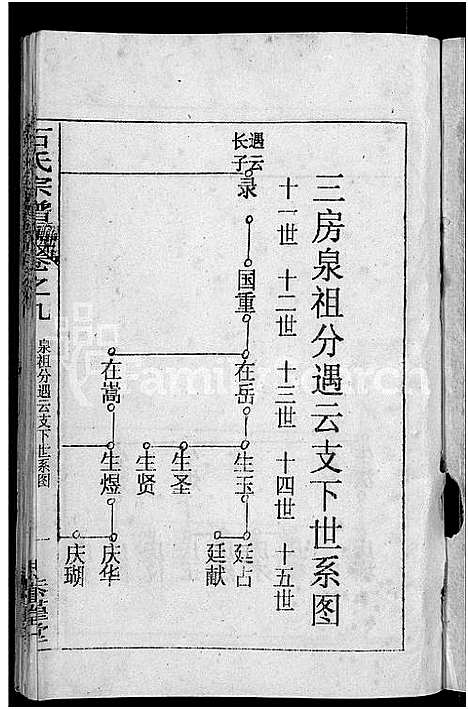 三房泉祖分遇云支下世系图
十一世 十二世 十三世 十四世 十五世
遇云
长子
录
国重
在岳
在嵩
生玉
生圣
生贤
生煜
廷占
廷献
庆华
庆瑚
石氏宗谱
卷之九
泉祖分遇云支下世系图
一